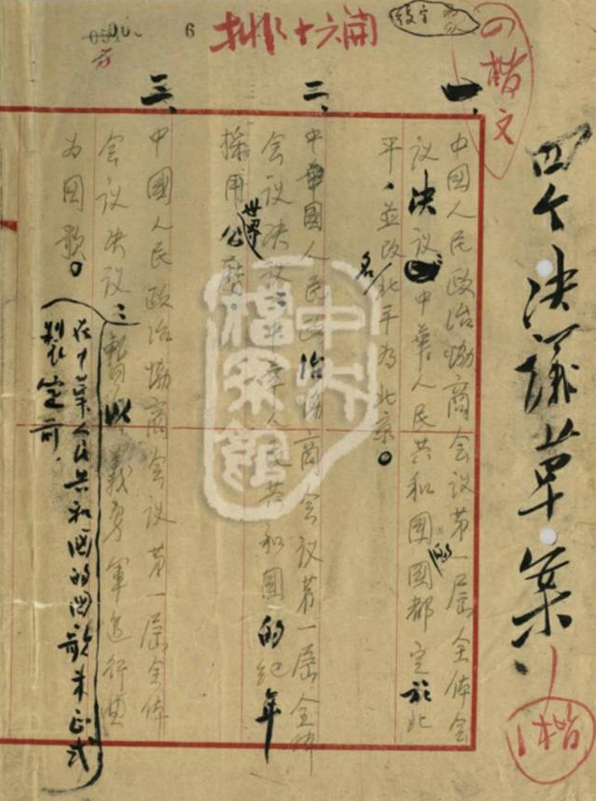 6
排十六開
楷文
四个决議草案
1楷
一、
中國人民政治协商会议第一届全体会
议决议:中华人民共和國的國都定於北
平,並改名北平为北京。
二、
中華國人民政治协商会议第一届全体
会议决议:中华人民共和國的纪年
採用世界公曆
三、
中國人民政治协商会议第一届全体
会议决议:在中华人民共和國的国歌未正式
製定前,
暫以義勇軍進行曲
为国歌。
中央
檔案館